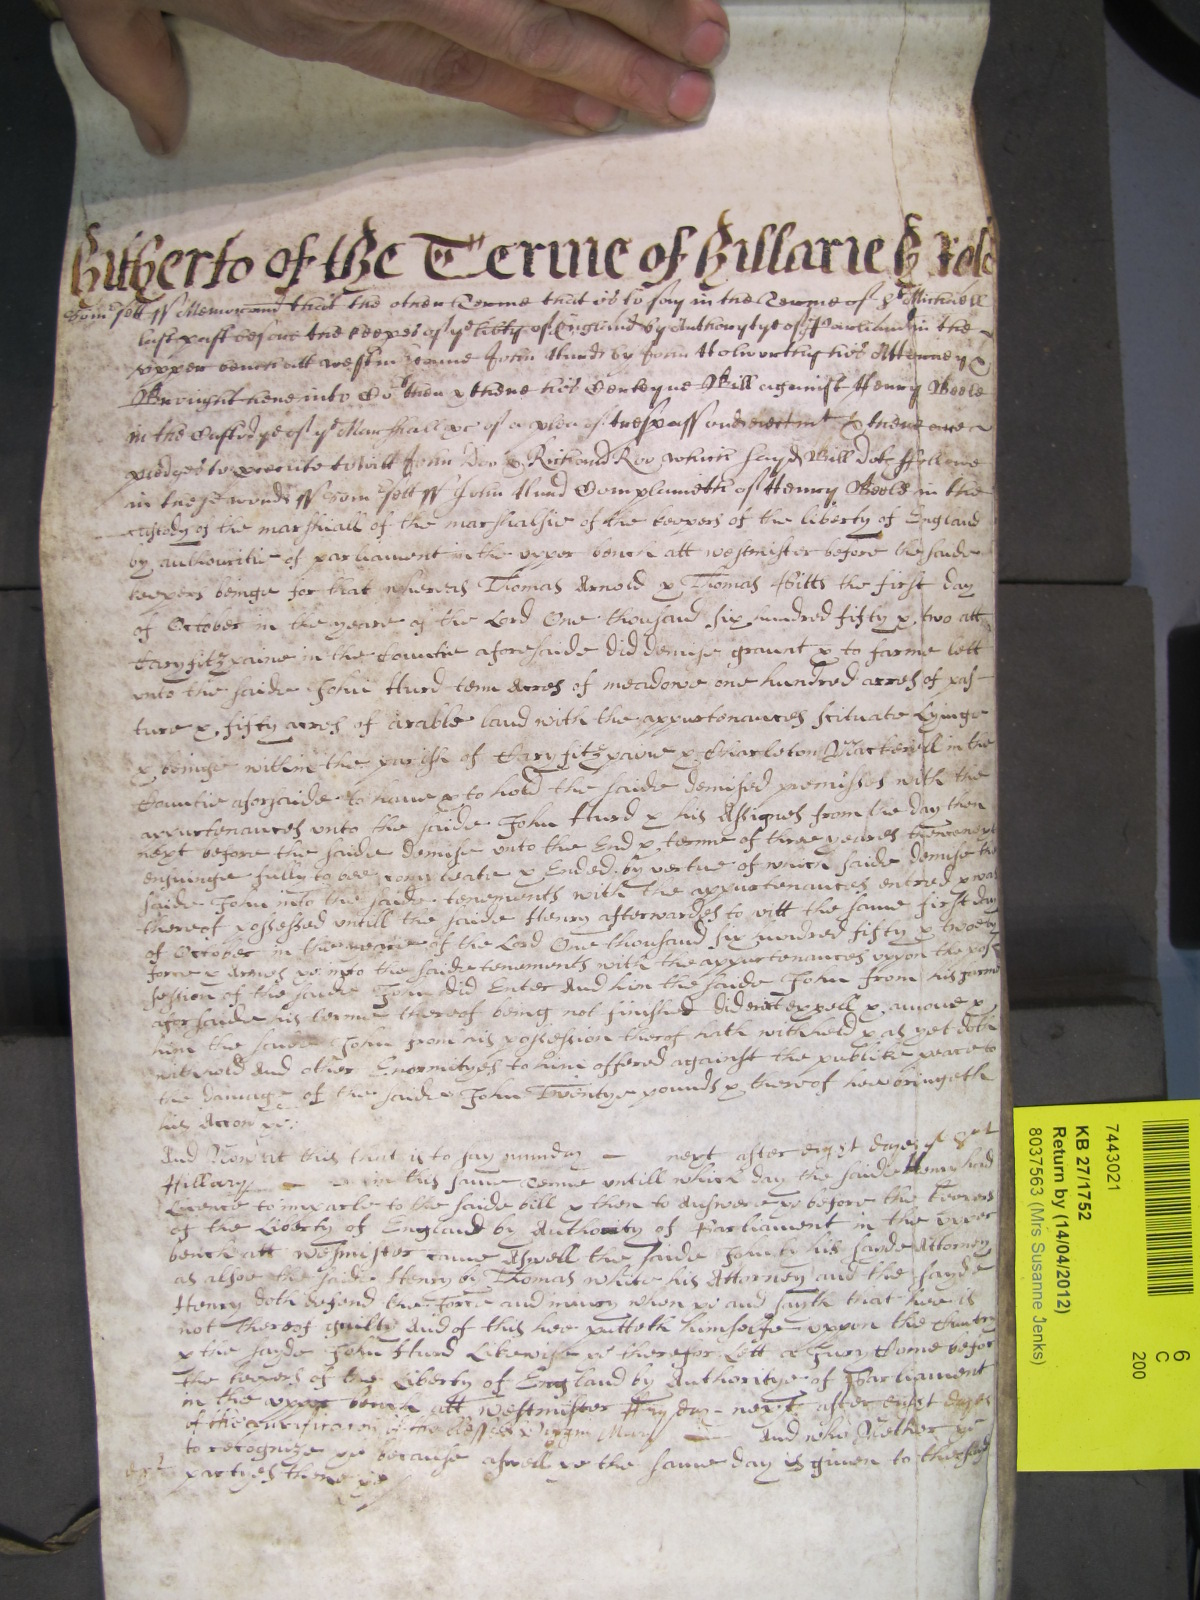 Hitherto of the Terme of Hillarie
Som'sett ss Memorand that the other Terme that is to say in the Terme of St Michaell
last past before the keepers of ye libtty of England by Authorytye of Parliamt in the
upper bench att Westm' came John Hurd by John Holworthy his Attorney &
Brought here into Co't then & there his Certeyne Bill against Henry Beele
in the Custodye of ye Marshall &c of a plea of trespass and eiectmt & there are
pledges to prosecute to witt John Doo & Richard Roo which sayd Bill doth followe
in these words ss Som'sett ss John Hurd Complaineth of Henry Beele in the
custody of the marshall of the marshalsie of the keepers of the liberty of England
by authouritie of parliament in the upper bench att westmister before the saide
keepers beinge for that whereas Thomas Arnold & Thomas Pitts the first day
of October in the yeare of the Lord One thousand six hundred fifty & two att
Caryfitzpaine in the Countie aforesaide did demise graunt & to farme lett
unto the saide John Hurd tenn Acres of meadowe one hundred acres of pas-
ture & fifty acres of arable land with the appurtenances scituate Lyinge
& beinge within the parish of Caryfitzpaine & Charleton Mackerell in the
Countie aforsaide to have & to hold the saide demised premisses with the
appurtenances unto the saide John Hurd & his Assignes from the day then
next before the saide demise unto the End & terme of three yeares thence next
ensuinge fully to bee compleate & Ended by vertue of which saide demise the
saide John into the saide tenements with the appurtenances entred & was
thereof possessed untill the saide Henry afterwardes to witt the same first day
of October in the yeare of the Lord One thousand six hundred fifty & two with
force & Armes &c into the saide tenements with the appurtenances uppon the pos-
session of the saide John did Enter And him the saide John from his farme
aforsaide his terme thereof being not finished did eiect expell & amove &
him the saide John from his possession therof hath withheld & as yet doth
withhold And other Enormityes to him offered against the publike peace to
the damage of the saide John Twentye pounds & thereof hee bringeth
his Accon &c:
And Now at this that is to say munday next after eight dayes of St
Hillary in this same terme untill which day the saide Henry had
Licence to imparle to the saide bill & then to Answere &c before the keepers
of the Liberty of England by Authority of Parliament in the upper
bench att Wesmister came Aswell the saide John by his saide Attorney
as alsoe the saide Henry by Thomas White his Attorney and the saide
Henry doth defend the force and iniury when &c and saith that hee is
not thereof guilty And of this hee putteth himselfe uppon the Cuntry
& the sayde John Hurd Likewise &c therefor Lett a Jury Come before
the keepers of the Liberty of England by Authoritye of Parliament
in the upper bench att Westmister next after eight dayes
of the purificacon of the blessed Virgin Mary And who Nether &c
to recognize &c because aswell &c the same day is given to the said
partyes there &c
7443021
KB 27/1752
Return by (14/04/2012)
8037563 (Mrs Susanne Jenks)
6
C
200